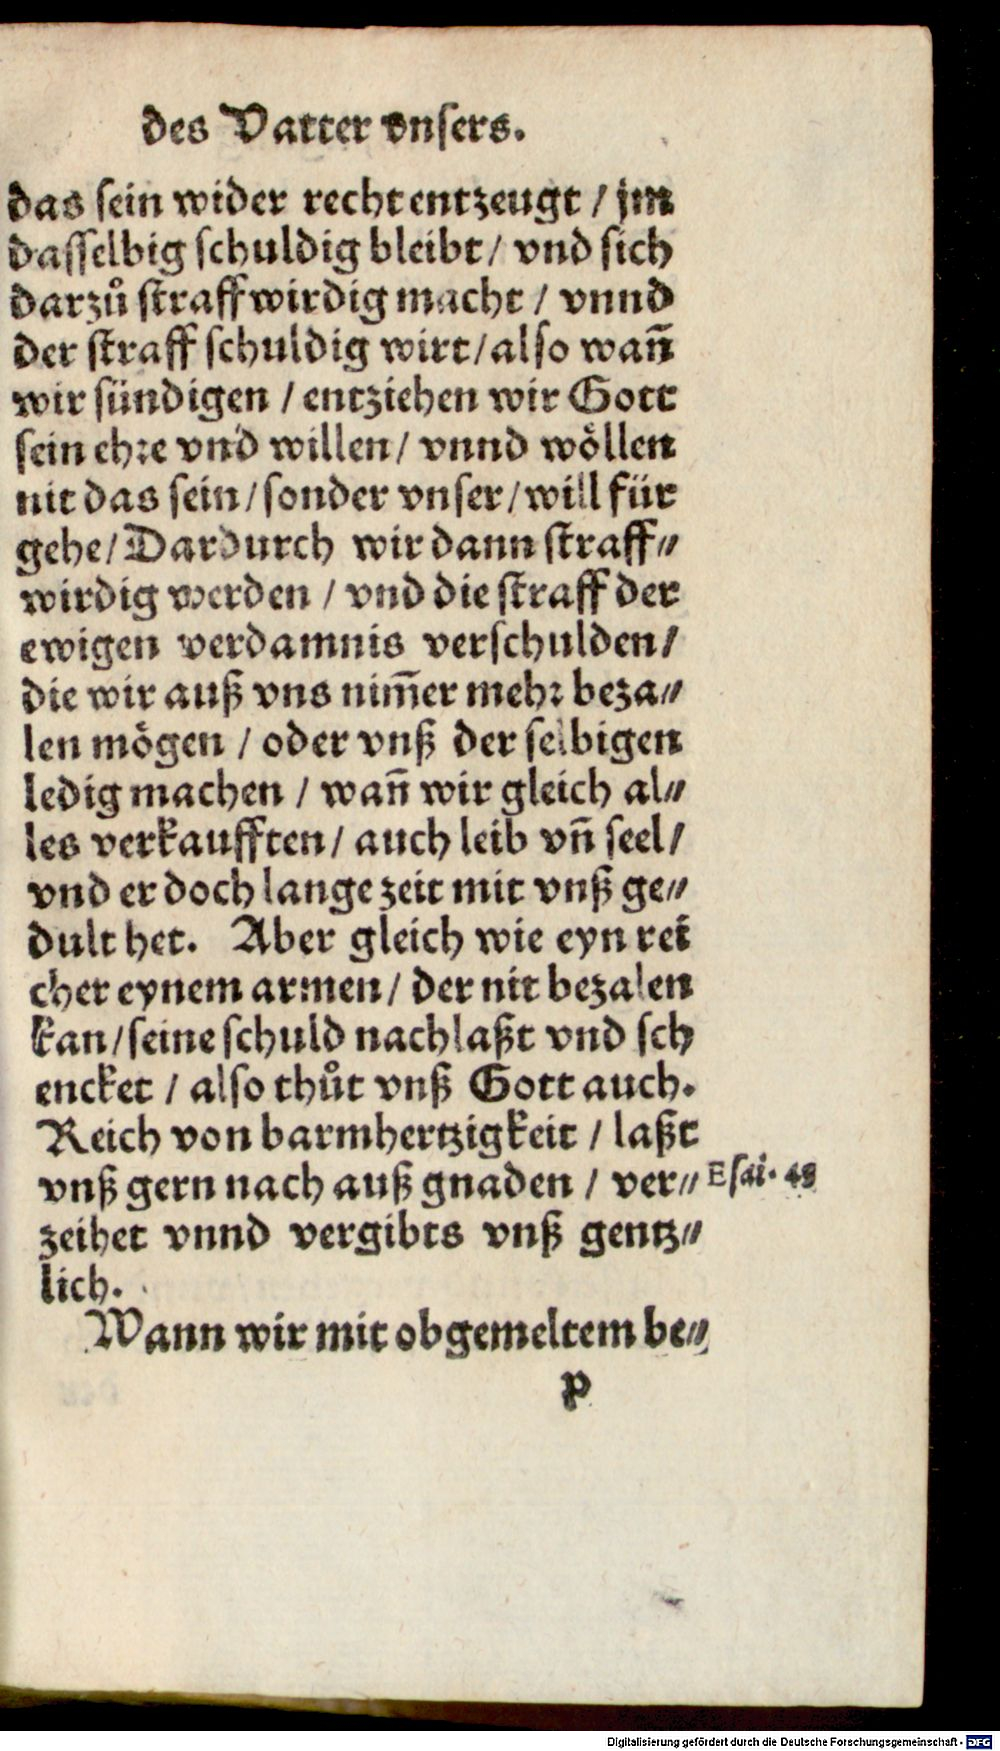 des Vatter vnsers.
das sein wider recht entzeugt / jm
dasselbig schuldig bleibt / vnd sich
darzů straff wirdig macht / vnnd
der straff schuldig wirt / also wañ
wir sündigen / entziehen wir Gott
sein ehre vnd willen / vnnd wöllen
nit das sein / sonder vnser / will für
gehe / Dardurch wir dann straff⸗
wirdig werden / vnd die straff der
ewigen verdamnis verschulden /
die wir auß vns nim̄er mehr beza⸗
len mögen / oder vnß der selbigen
ledig machen / wañ wir gleich al⸗
les verkaufften / auch leib vñ seel /
vnd er doch lange zeit mit vnß ge⸗
dult het. Aber gleich wie eyn rei
cher eynem armen / der nit bezalen
kan / seine schuld nachlaßt vnd sch
encket / also thůt vnß Gott auch.
Reich von barmhertzigkeit / laßt
vnß gern nach auß gnaden / ver⸗ Esai. 48
zeihet vnnd vergibts vnß gentz⸗
lich.
Wann wir mit obgemeltem be⸗
P
Digitalisierung gefördert durch die Deutsche Forschungsgemeinschaft - DFG